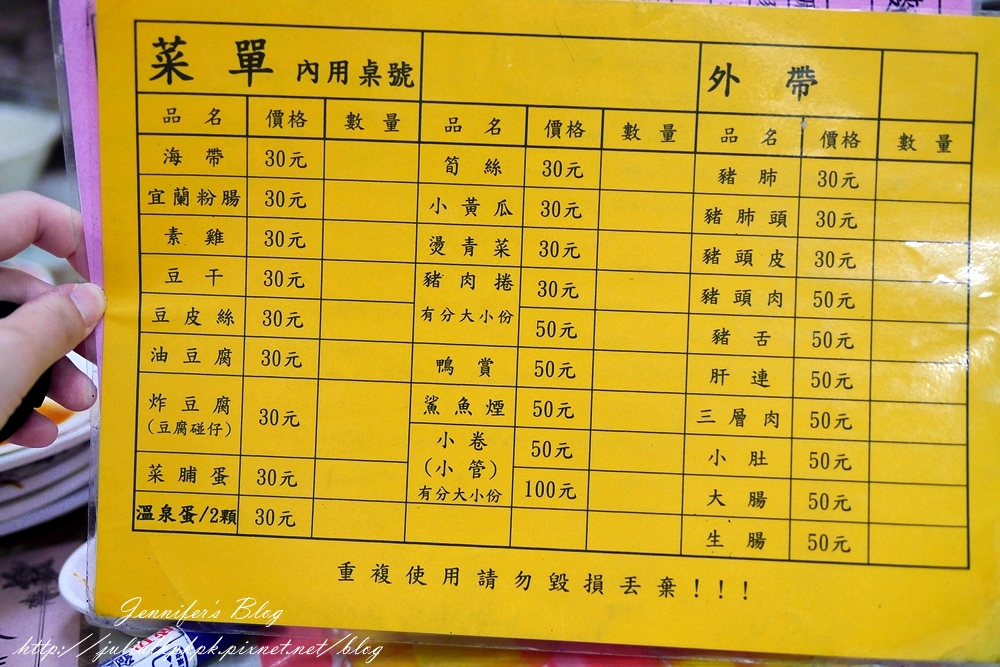 菜單 內用桌號 外帶
品名 價格 數量 品名 價格 數量 品名 價格 數量
海帶 30元
宜蘭粉腸 30元
素雞 30元
豆干 30元
豆皮絲 30元
油豆腐 30元
炸豆腐 30元
(豆腐碰仔)
菜脯蛋 30元
溫泉蛋/2顆 30元
筍絲 30元
小黃瓜 30元
燙青菜 30元
豬肉捲 30元
有分大小份 50元
鴨賞 50元
鯊魚煙 50元
小卷 50元
(小管)
有分大小份 100元
豬肺 30元
豬肺頭 30元
豬頭皮 30元
豬頭肉 50元
豬舌 50元
肝連 50元
三層肉 50元
小肚 50元
大腸 50元
生腸 50元
重複使用請勿毀損丟棄!!!
Jennifer's Blog